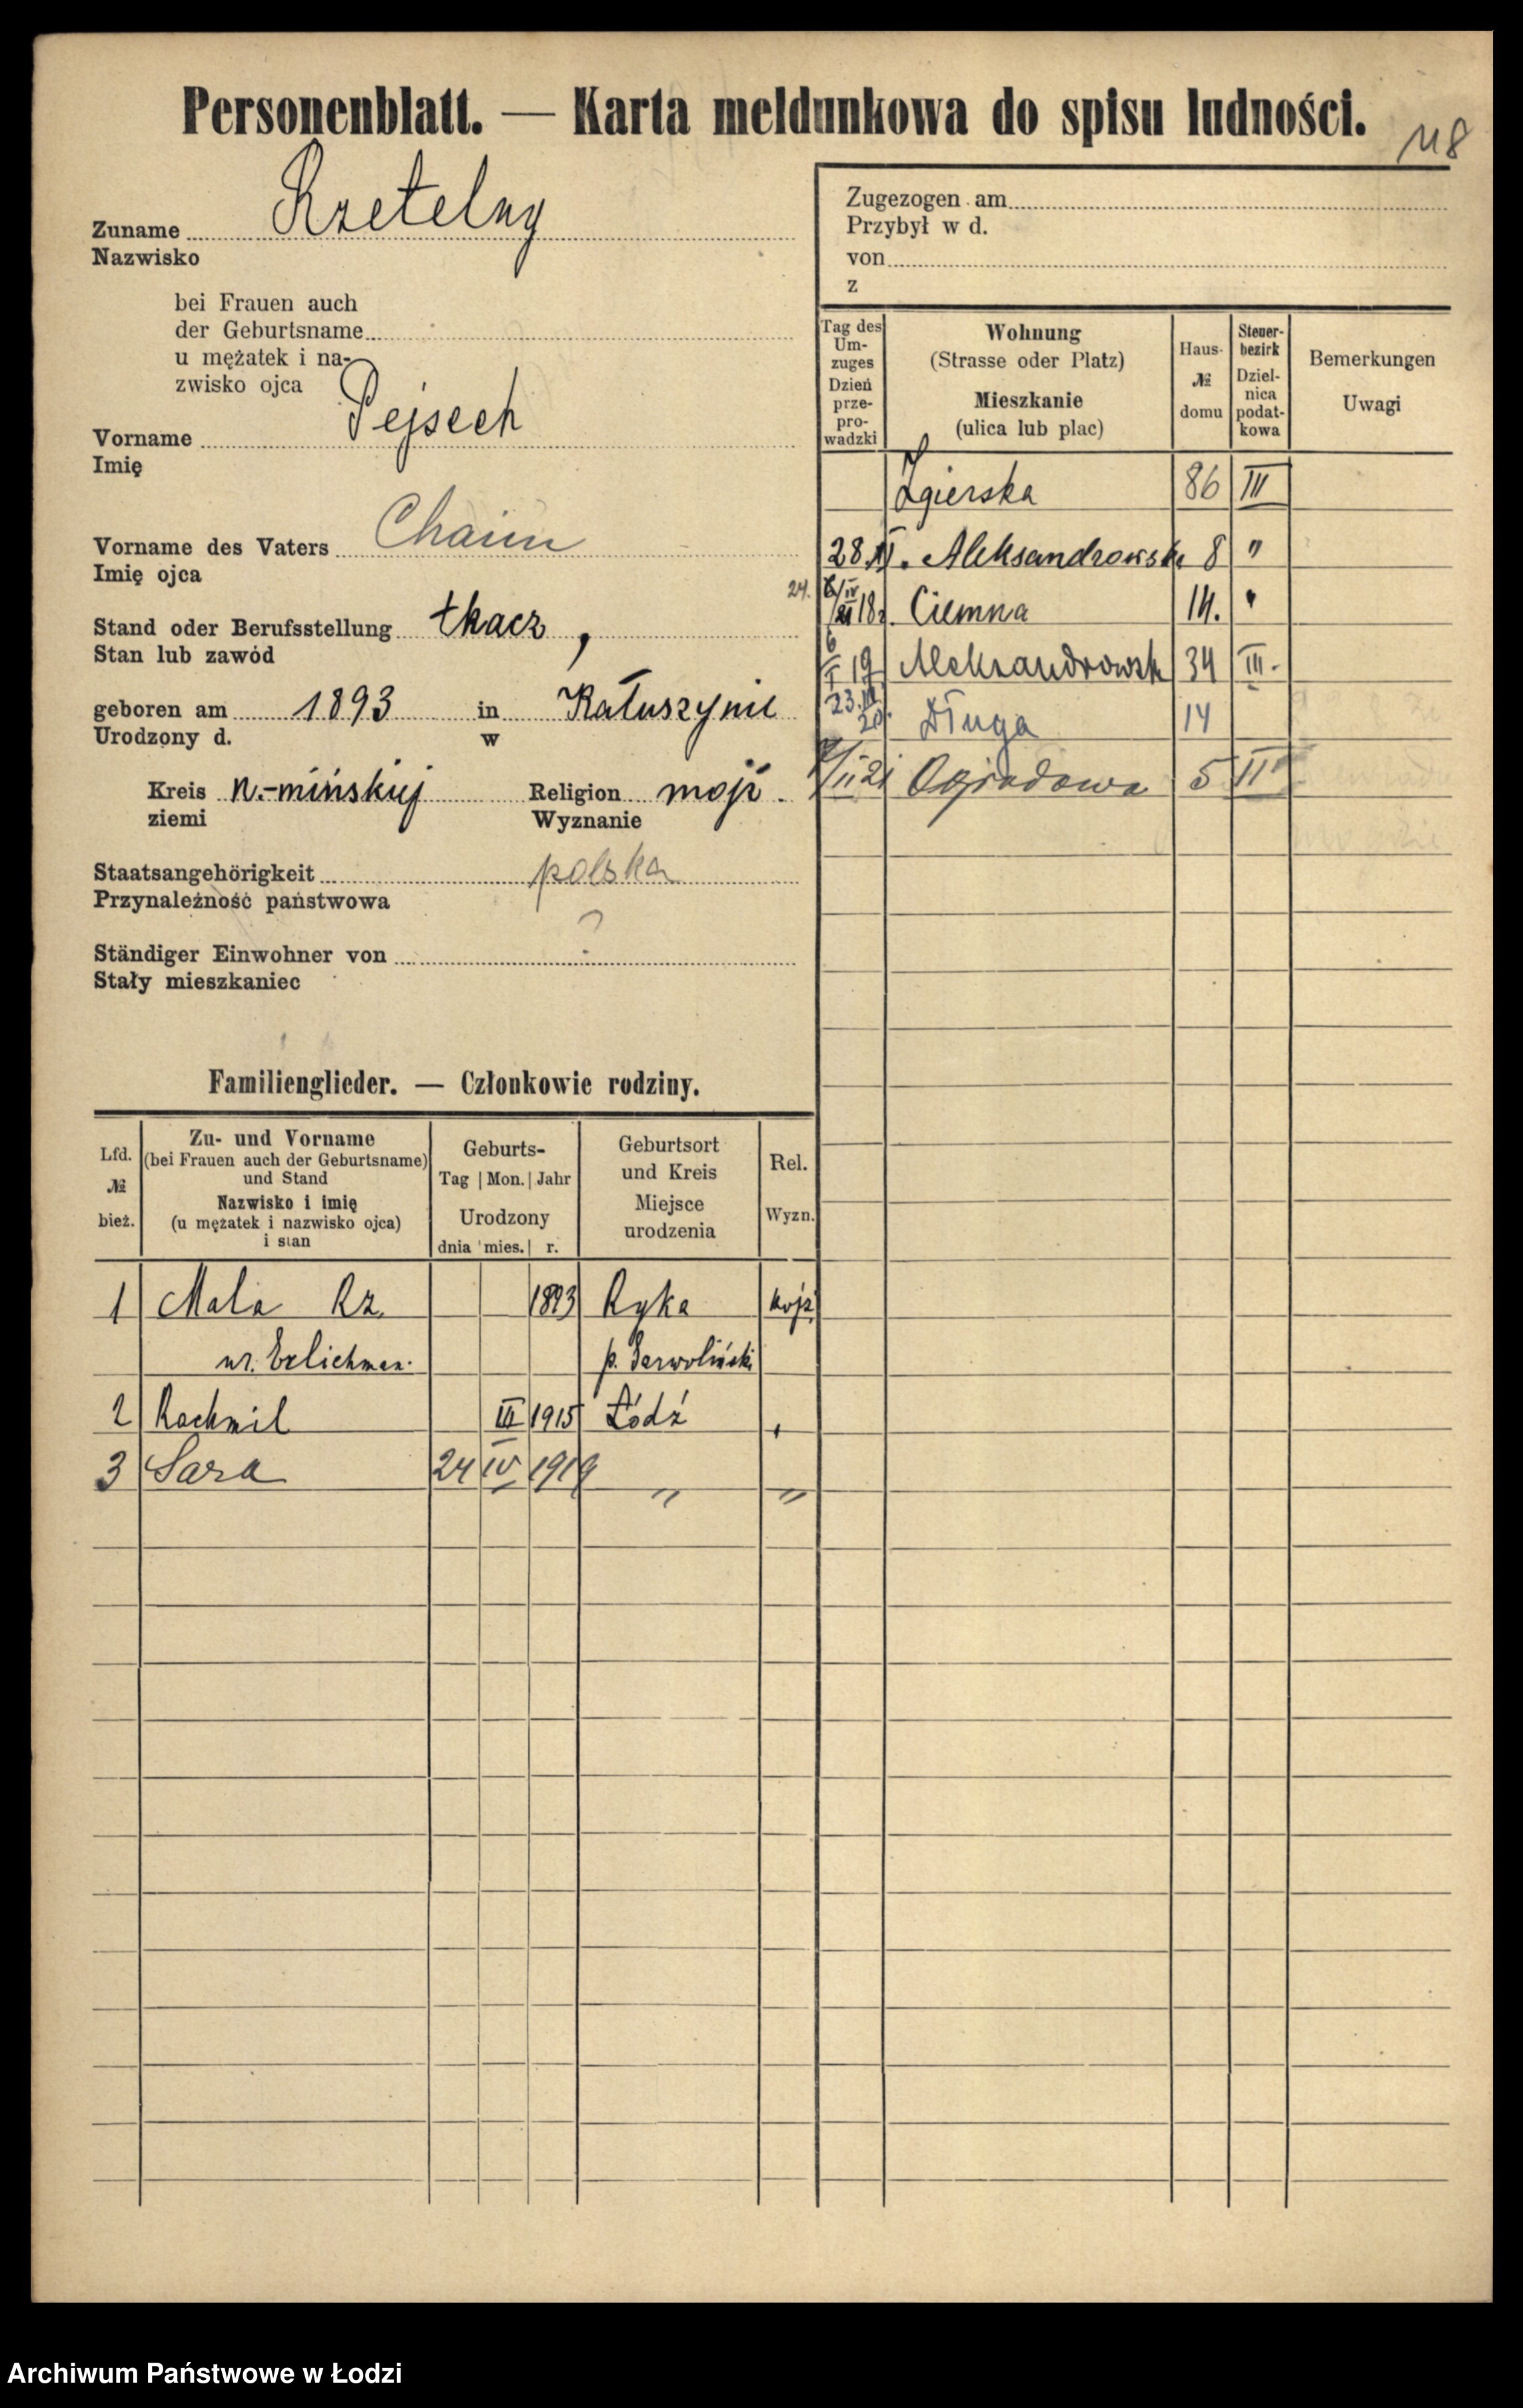 Personenblatt. — Karta meldunkowa do spisu ludności.
118
Zuname Rzetelny
Nazwisko
bei Frauen auch
der Geburtsname
u mężatek i na-
zwisko ojca
Vorname Pejsech
Imię
Vorname des Vaters Chaim
Imię ojca
Stand oder Berufsstellung tkacz,
Stan lub zawód
geboren am 1893 in Kałuszynie
Urodzony d. w
Kreis n.-mińskiej Religion mojż.
ziemi Wyznanie
Staatsangehörigkeit polska
Przynależność państwowa
?
Ständiger Einwohner von
Stały mieszkaniec
Zugezogen am
Przybył w d.
von
z
Tag des Um-zuges Dzień prze-pro-wadzki | Wohnung (Strasse oder Platz) Mieszkanie (ulica lub plac) | Haus-№ domu | Steuer-bezirk Dziel-nica podat-kowa | Bemerkungen Uwagi
Zgierska 86 III
28 Aleksandrowsk 8 "
24. 18 Ciemna 14. "
6 19 Aleksandrowsk 34 III.
23. 20. Długa 14
21 Ogrodowa 5 II
Familienglieder. — Członkowie rodziny.
Lfd. № bież. | Zu- und Vorname (bei Frauen auch der Geburtsname) und Stand Nazwisko i imię (u mężatek i nazwisko ojca) i stan | Geburts- Tag | Mon. | Jahr Urodzony dnia mies. r. | Geburtsort und Kreis Miejsce urodzenia | Rel. Wyzn.
1 Mala Rz. 1893 Ryka mojż
ur. Erlichman. p. Garwoliński
2 Rachmil III 1915 Łódź "
3 Sara 24 IV 1919 " "
Archiwum Państwowe w Łodzi